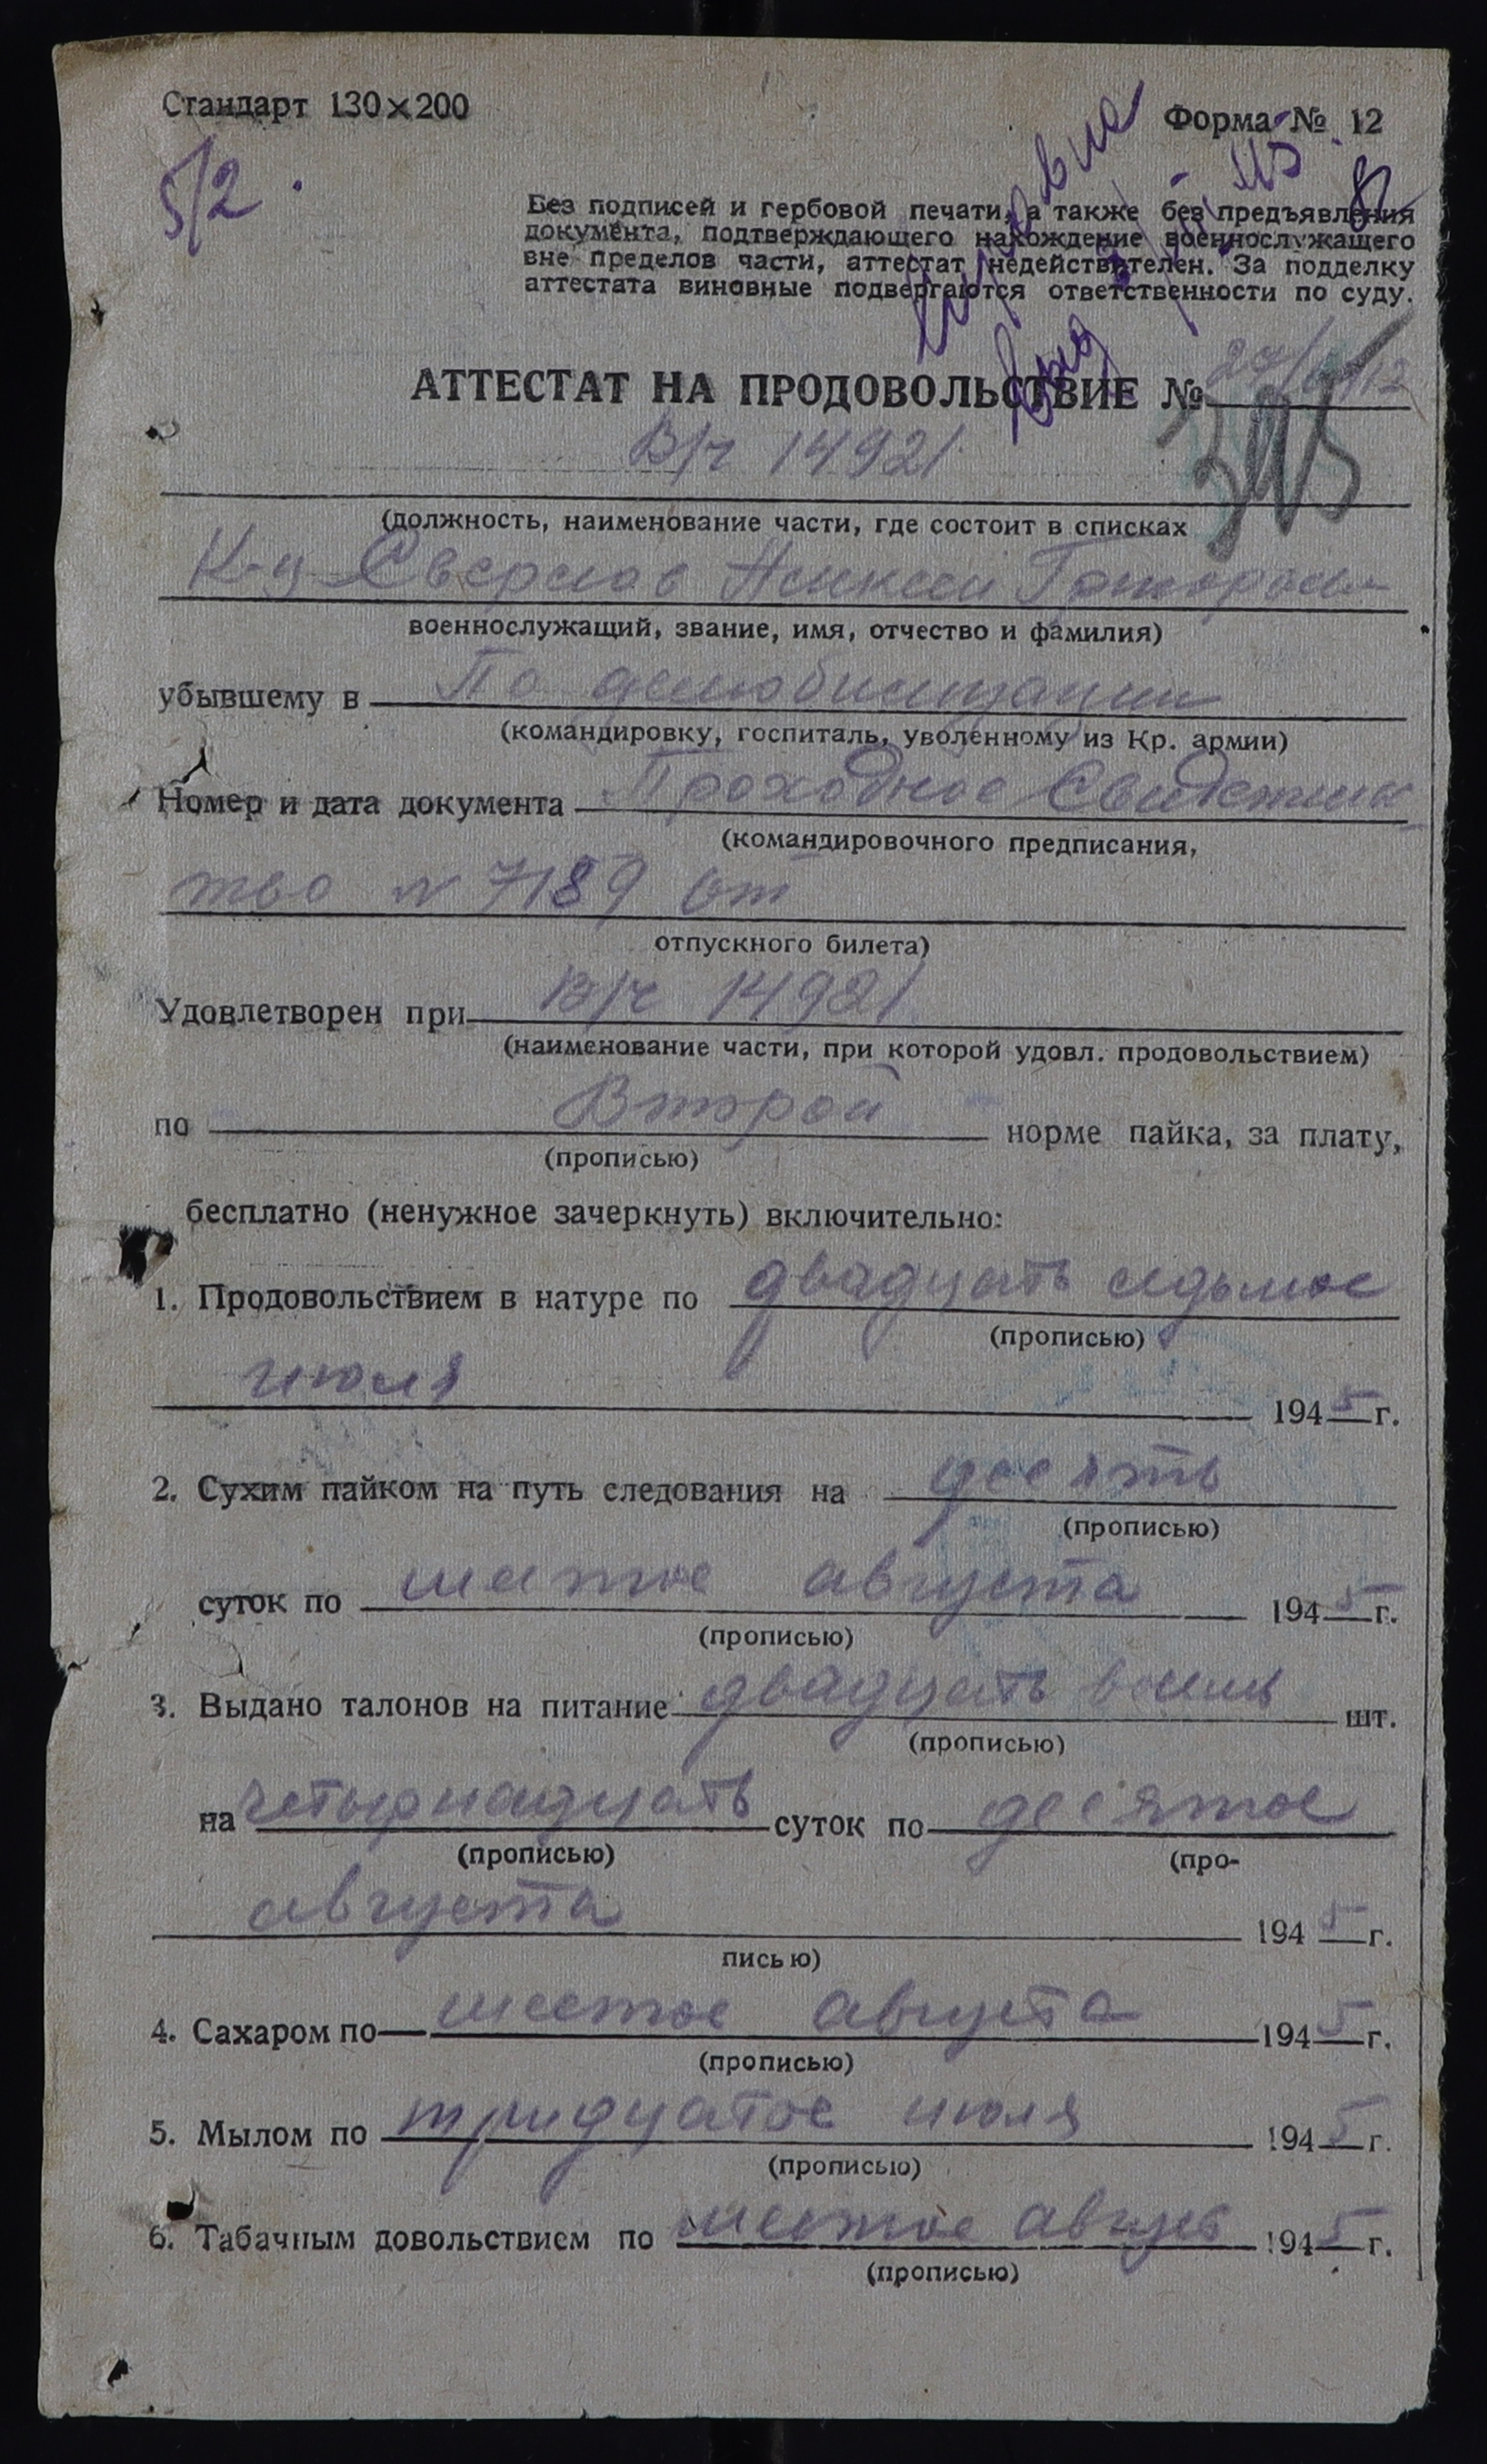 Стандарт 130×200
Форма № 12
5/2.
Без подписей и гербовой печати, а также без предъявления
документа, подтверждающего нахождение военнослужащего
вне пределов части, аттестат недействителен. За подделку
аттестата виновные подвергаются ответственности по суду.
АТТЕСТАТ НА ПРОДОВОЛЬСТВИЕ №
В/ч 14921
(должность, наименование части, где состоит в списках
К-ц
военнослужащий, звание, имя, отчество и фамилия)
убывшему в По демобилизации
(командировку, госпиталь, уволенному из Кр. армии)
Номер и дата документа Проходное Свидетель
(командировочного предписания,
тво N 7189 от
отпускного билета)
Удовлетворен при В/ч 14921
(наименование части, при которой удовл. продовольствием)
по Второй норме пайка, за плату,
(прописью)
бесплатно (ненужное зачеркнуть) включительно:
1. Продовольствием в натуре по двадцать седьмое
(прописью)
июля 1945 г.
2. Сухим пайком на путь следования на десять
(прописью)
суток по шестое августа 1945 г.
(прописью)
3. Выдано талонов на питание двадцать восемь шт.
(прописью)
на четырнадцать суток по десятое
(прописью) (про-
августа 1945 г.
писью)
4. Сахаром по шестое августа 1945 г.
(прописью)
5. Мылом по тридцатое июля 1945 г.
(прописью)
6. Табачным довольствием по шестое август 1945 г.
(прописью)